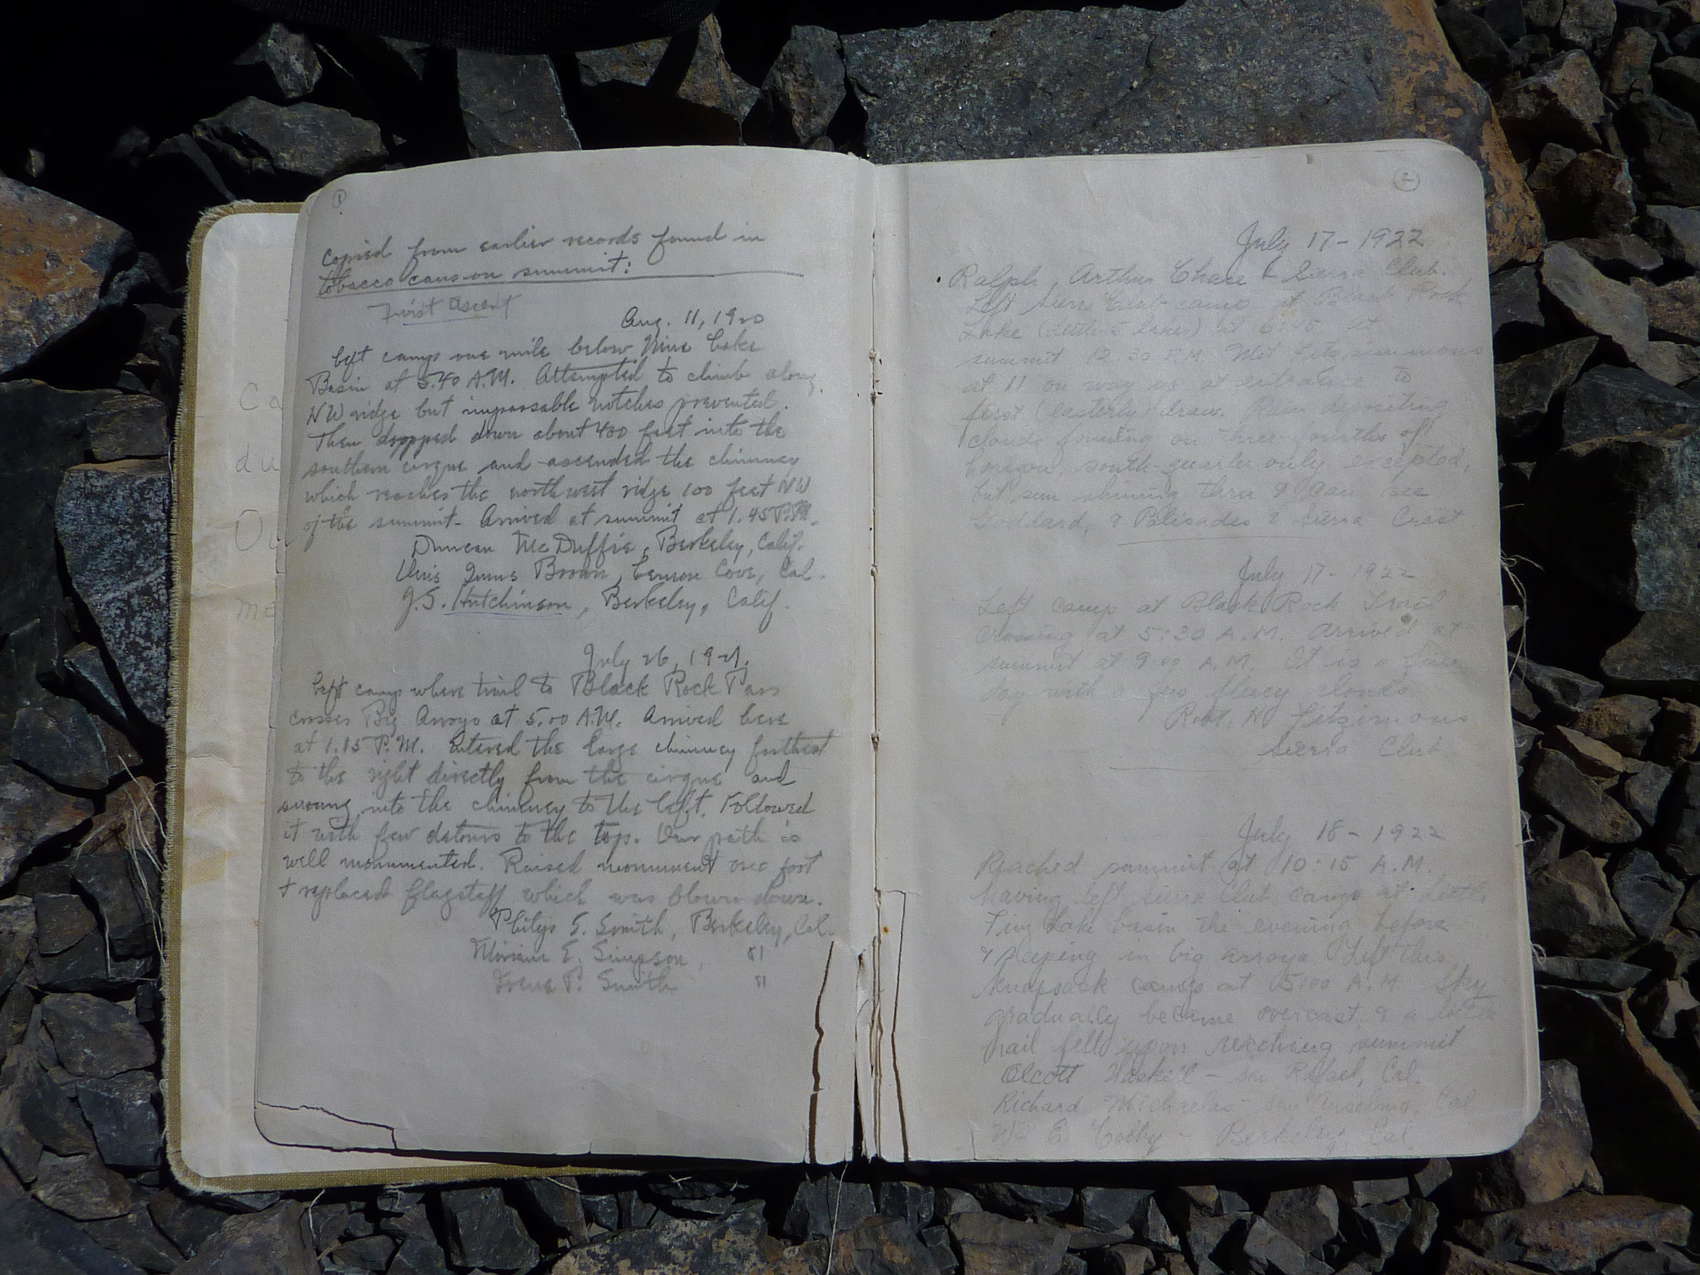 1
Copied from earlier records found in
tobacco cans on summit:
First Ascent
Aug. 11, 1920
Left camp one mile below Nine Lake
Basin at 5.40 A.M. Attempted to climb along
NW ridge but impassable notches prevented.
Then dropped down about 400 feet into the
southern cirque and ascended the chimney
which reaches the northwest ridge 100 feet NW
of the summit - Arrived at summit at 1.45 P.M.
Duncan McDuffie, Berkeley, Calif.
Brown, Lemon Cove, Cal.
J.S. Hutchinson, Berkeley, Calif.
July 26, 1921.
Left camp where trail to Black Rock Pass
crosses Big Arroyo at 5.00 A.M. Arrived here
at 1.15 P.M. Entered the large chimney furthest
to the right directly from the cirque and
swung into the chimney to the left. Followed
it with few detours to the top. Our path is
well monumented. Raised monument one foot
+ replaced flagstaff which was blown down.
Philip S. Smith, Berkeley, Cal.
Miriam E. Simpson, "
Smith "
Ca
du
Ou
me
2
July 17 - 1922
Ralph Arthur Chase Sierra Club.
Left Sierra Club camp at Black Rock
Lake at 6:45 at
summit 12.30 P.M. Met Fitzsimmons
at 11 on way up at entrance to
first (easterly) draw.
clouds forming on three-fourths of
horizon, south quarter only excepted,
but sun shining thru & can see
Goddard, & Palisades & Sierra Crest
July 17 - 1922
Left camp at Black Rock Trail
crossing at 5:30 A.M. Arrived at
summit at 9:00 A.M. It is a
day with a few fleecy clouds
Robt. N. Fitzsimmons
Sierra Club
July 18 - 1922
Reached summit at 10:15 A.M.
having left Sierra Club camp at
Lake basin the evening before
& sleeping in big arroyo. Left this
knapsack camp at 5:00 A.M. Sky
gradually became overcast & a
hail fell upon reaching summit
Olcott Haskell - San Rafael, Cal.
Richard San Anselmo, Cal
Colby - Berkeley, Cal